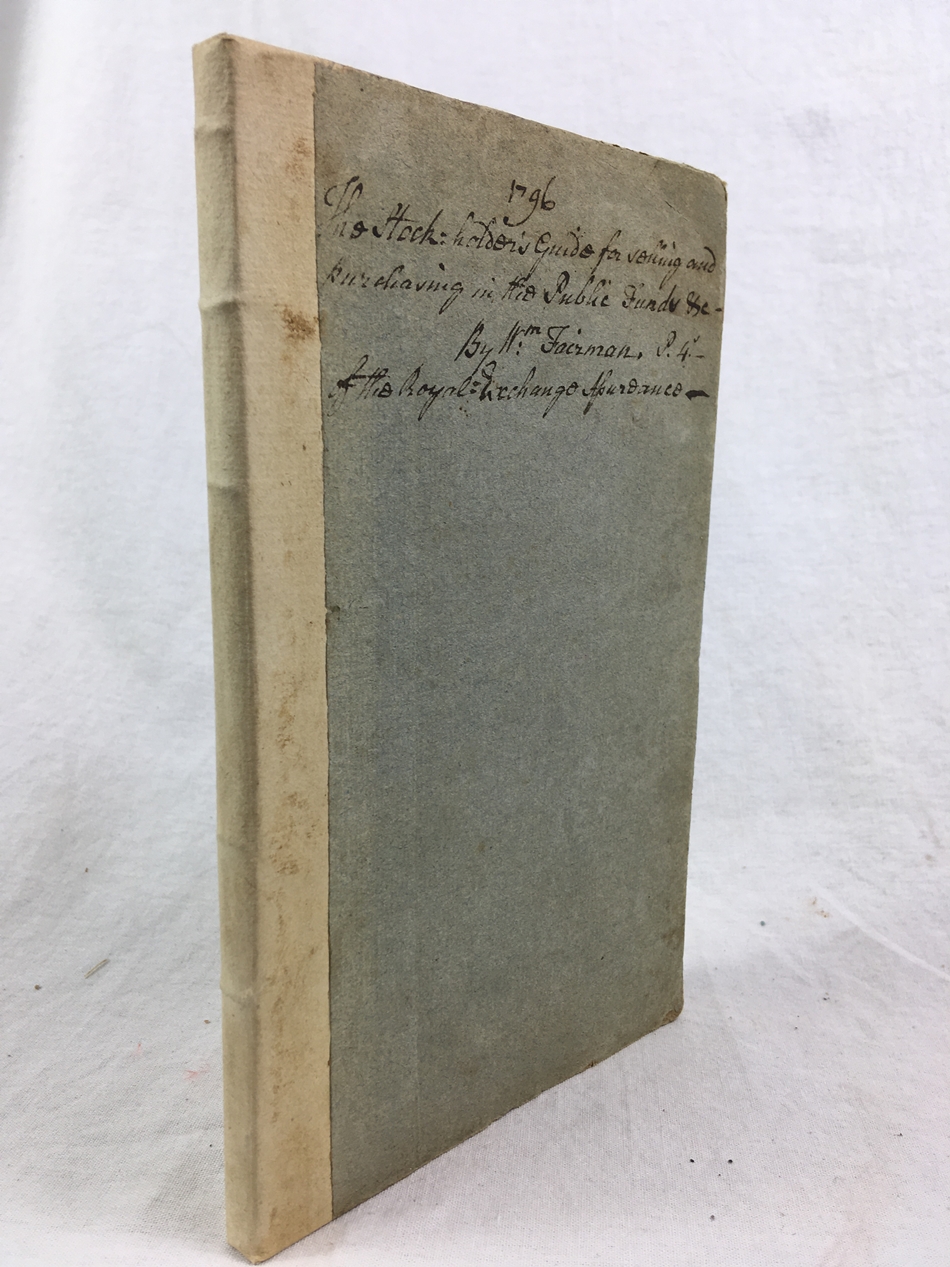 1796
The Stock=holder's Guide for selling and
purchasing in the Public Funds &c-
By Wm. Fairman. P. 4s-
Of the Royal=Exchange Assurance-